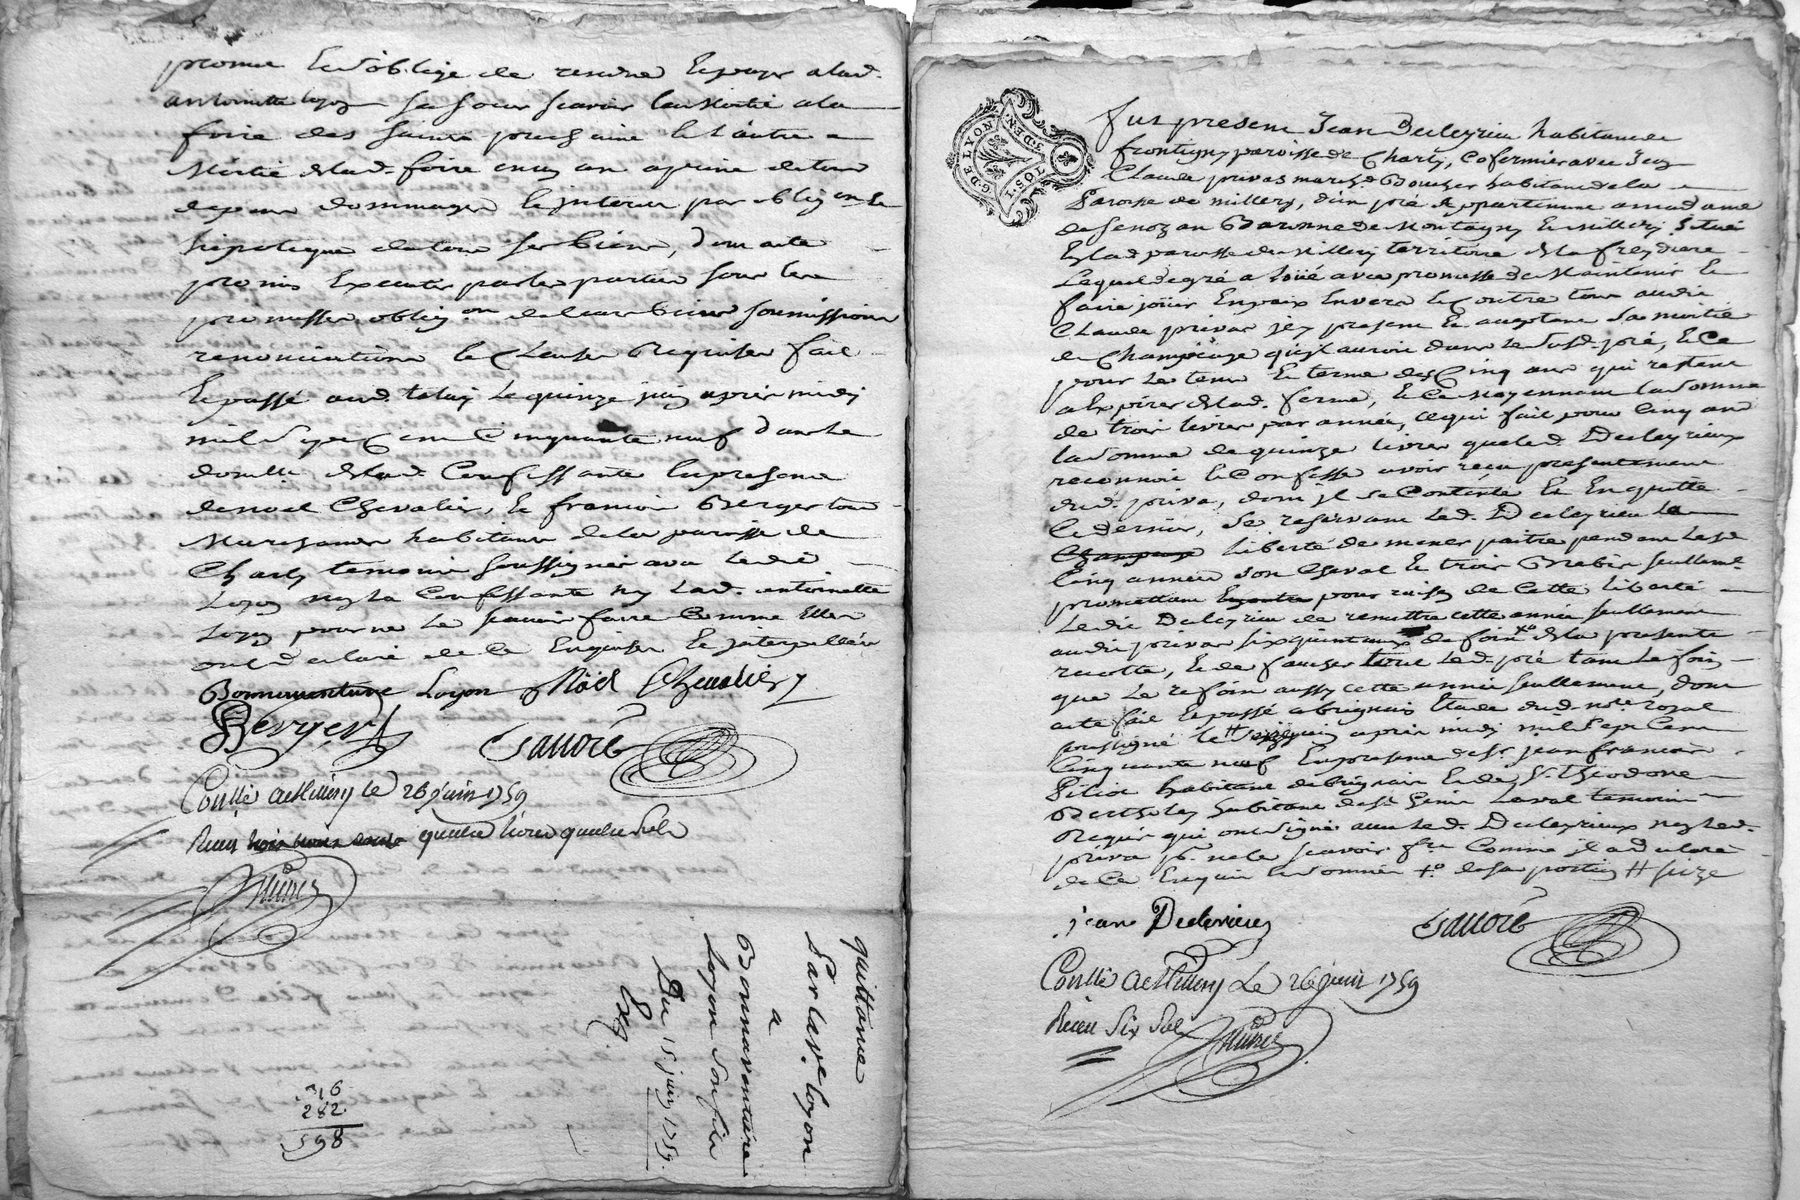 promet et s'oblige de rendre et payer a lad.
antoinette loyon sa soeur scavoir la moitié a la
foire des saints prochaine et l'autre
Moitié a lad. foire en un an a peine de tous
depens dommages et interets par obligon et
hipoteque de tous ses biens, dont acte
promis Executer par les parties sous les
promesses, obligon de leurs biens soumissions
renonciations et Clauses Requises fait
et passé aud. le quinze juin apres midi
mil sept Cent Cinquante neuf dans le
domlle de lad. Confessante En presence
de noel Chevalier, et francois Berger tous
Marchands habitans de la paroisse de
Charly temoins soussignés avec ledit
Loyon ny la Confessante ny Lad. antoinette
Loyon pour ne le scavoir faire Comme Elles
ont declaré de ce Enquises et interpellées
Bonnaventure Loyon Noël Chevallier
Berger
Savoré
Conllé a Millery le 26 juin 1759
Receu quatre livres quatre sols
quittance
Par la ve loyon
a
Bonnavanture
Loyon son fils
Du 15 juin 1759.
Exp.
16
282
598
G. DE LYON
1. SOL 3. DEN.
Fut present Jean Decleyrieu habitant de
frontigny paroisse de Charly, cofermier avec Sieur
Claude privas marchd Boucher habitant de la
Paroisse de millery, d'un pré appartenant a madame
de Senozan Baronne de Montagny et millery Situé
En lad paroisse de Millery territoire de la freydiere
Lequel de gré a loüé avec promesse de Maintenir et
faire joüir En paix Envers et Contre tous audit
Claude privas icy present et acceptant Sa moitié
de Champéage qu'il auroit dans le susd. pré, et Ce
pour le tems et terme des Cinq ans qui restent
a Expirer de lad. ferme, et Ce moyennant la somme
de trois livres par année, ce qui fait pour Cinq ans
la somme de quinze livres que led. Decleyrieux
reconnoit et Confesse avoir reçu presentement
dud. privas, dont il se Contente et En quitte
Ce dernier, se reservant led. Decleyrieu la
liberté de mener paitre pendant lesd.
Cinq années son Cheval et trois Brebis seullemt
promettant pour raison de Cette liberté
Ledit Decleyrieu de remettre cette année seullement
audit privas six quintaux de foin de la presente
recolte, et de faucher tout led. pré tant le foin
que le refoin aussy cette année seullement, dont
acte fait et passé a brignais Etude dud. notre royal
soussigné le juin apres midi mil sept Cent
Cinquante neuf En presence de sr. jean francois
habitant de brignais et de sr. Theodore
Bertheley habitant de st Genis Laval temoins
Requis qui ont signé avec led. Decleyrieux ny led.
privas pr. ne le scavoir fre Comme il a declaré
de Ce Enquis et sommé de sa portion # seize
jean Declerieux
Savoré
Conllé a Millery Le 26 juin 1759
Receu Six Sols